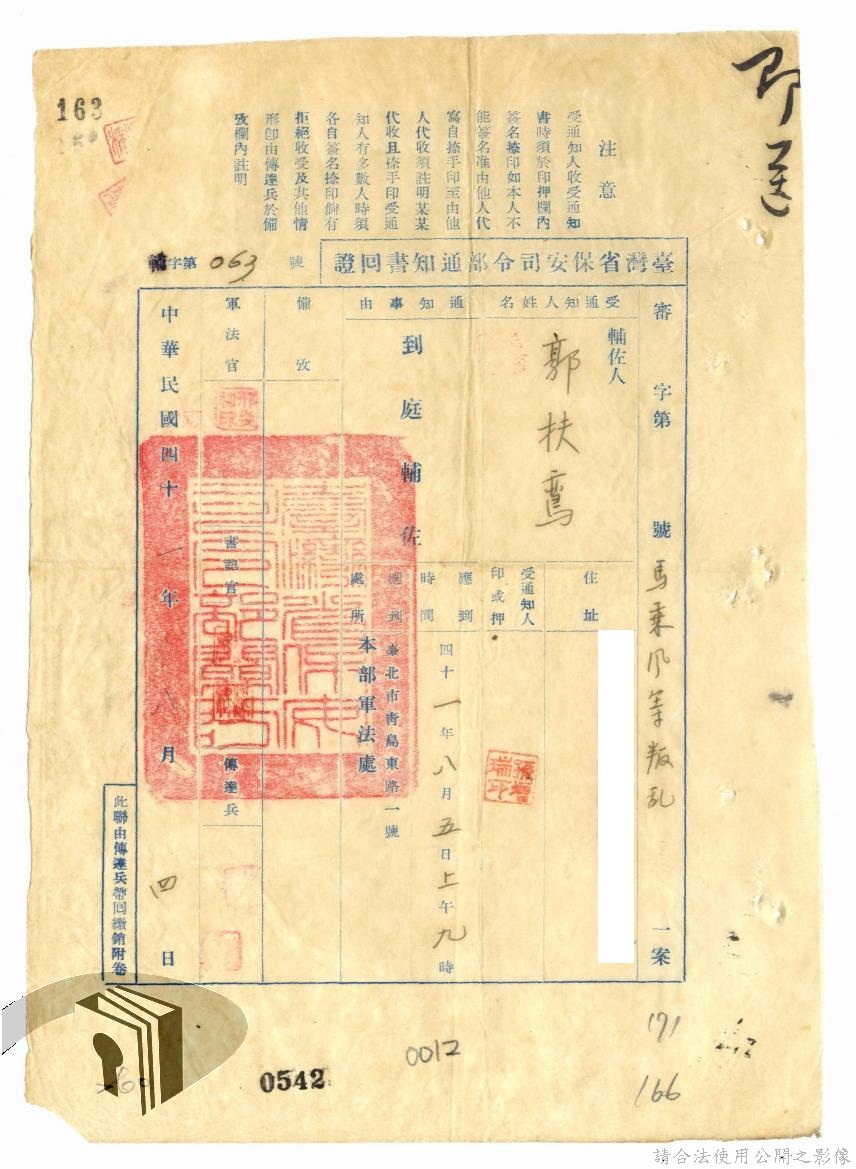 即送
163
注意
受通知人收受通知
書時須於印押欄內
簽名捺印如本人不
能簽名准由他人代
寫自捺手印至由他
人代收須註明某某
代收且捺手印受通
知人有多數人時須
各自簽名捺印倘有
拒絕收受及其他情
形卽由傳達兵於備
攷欄內註明
臺灣省保安司令部通知書回證
輔字第063號
審字第 號馬乘风等叛乱一案
受通知人姓名
輔佐人
郭扶鸞
住址
受通知人
印或押
通知事由
到庭輔佐
應到
時間
四十一年八月五日上午九時
應到
處所
臺北市靑島東路一號
本部軍法處
備攷
軍法官
書記官
傳達兵
中華民國四十一年八月四日
此聯由傳達兵帶回繳銷附卷
0012
0542
171
166
請合法使用公開之影像